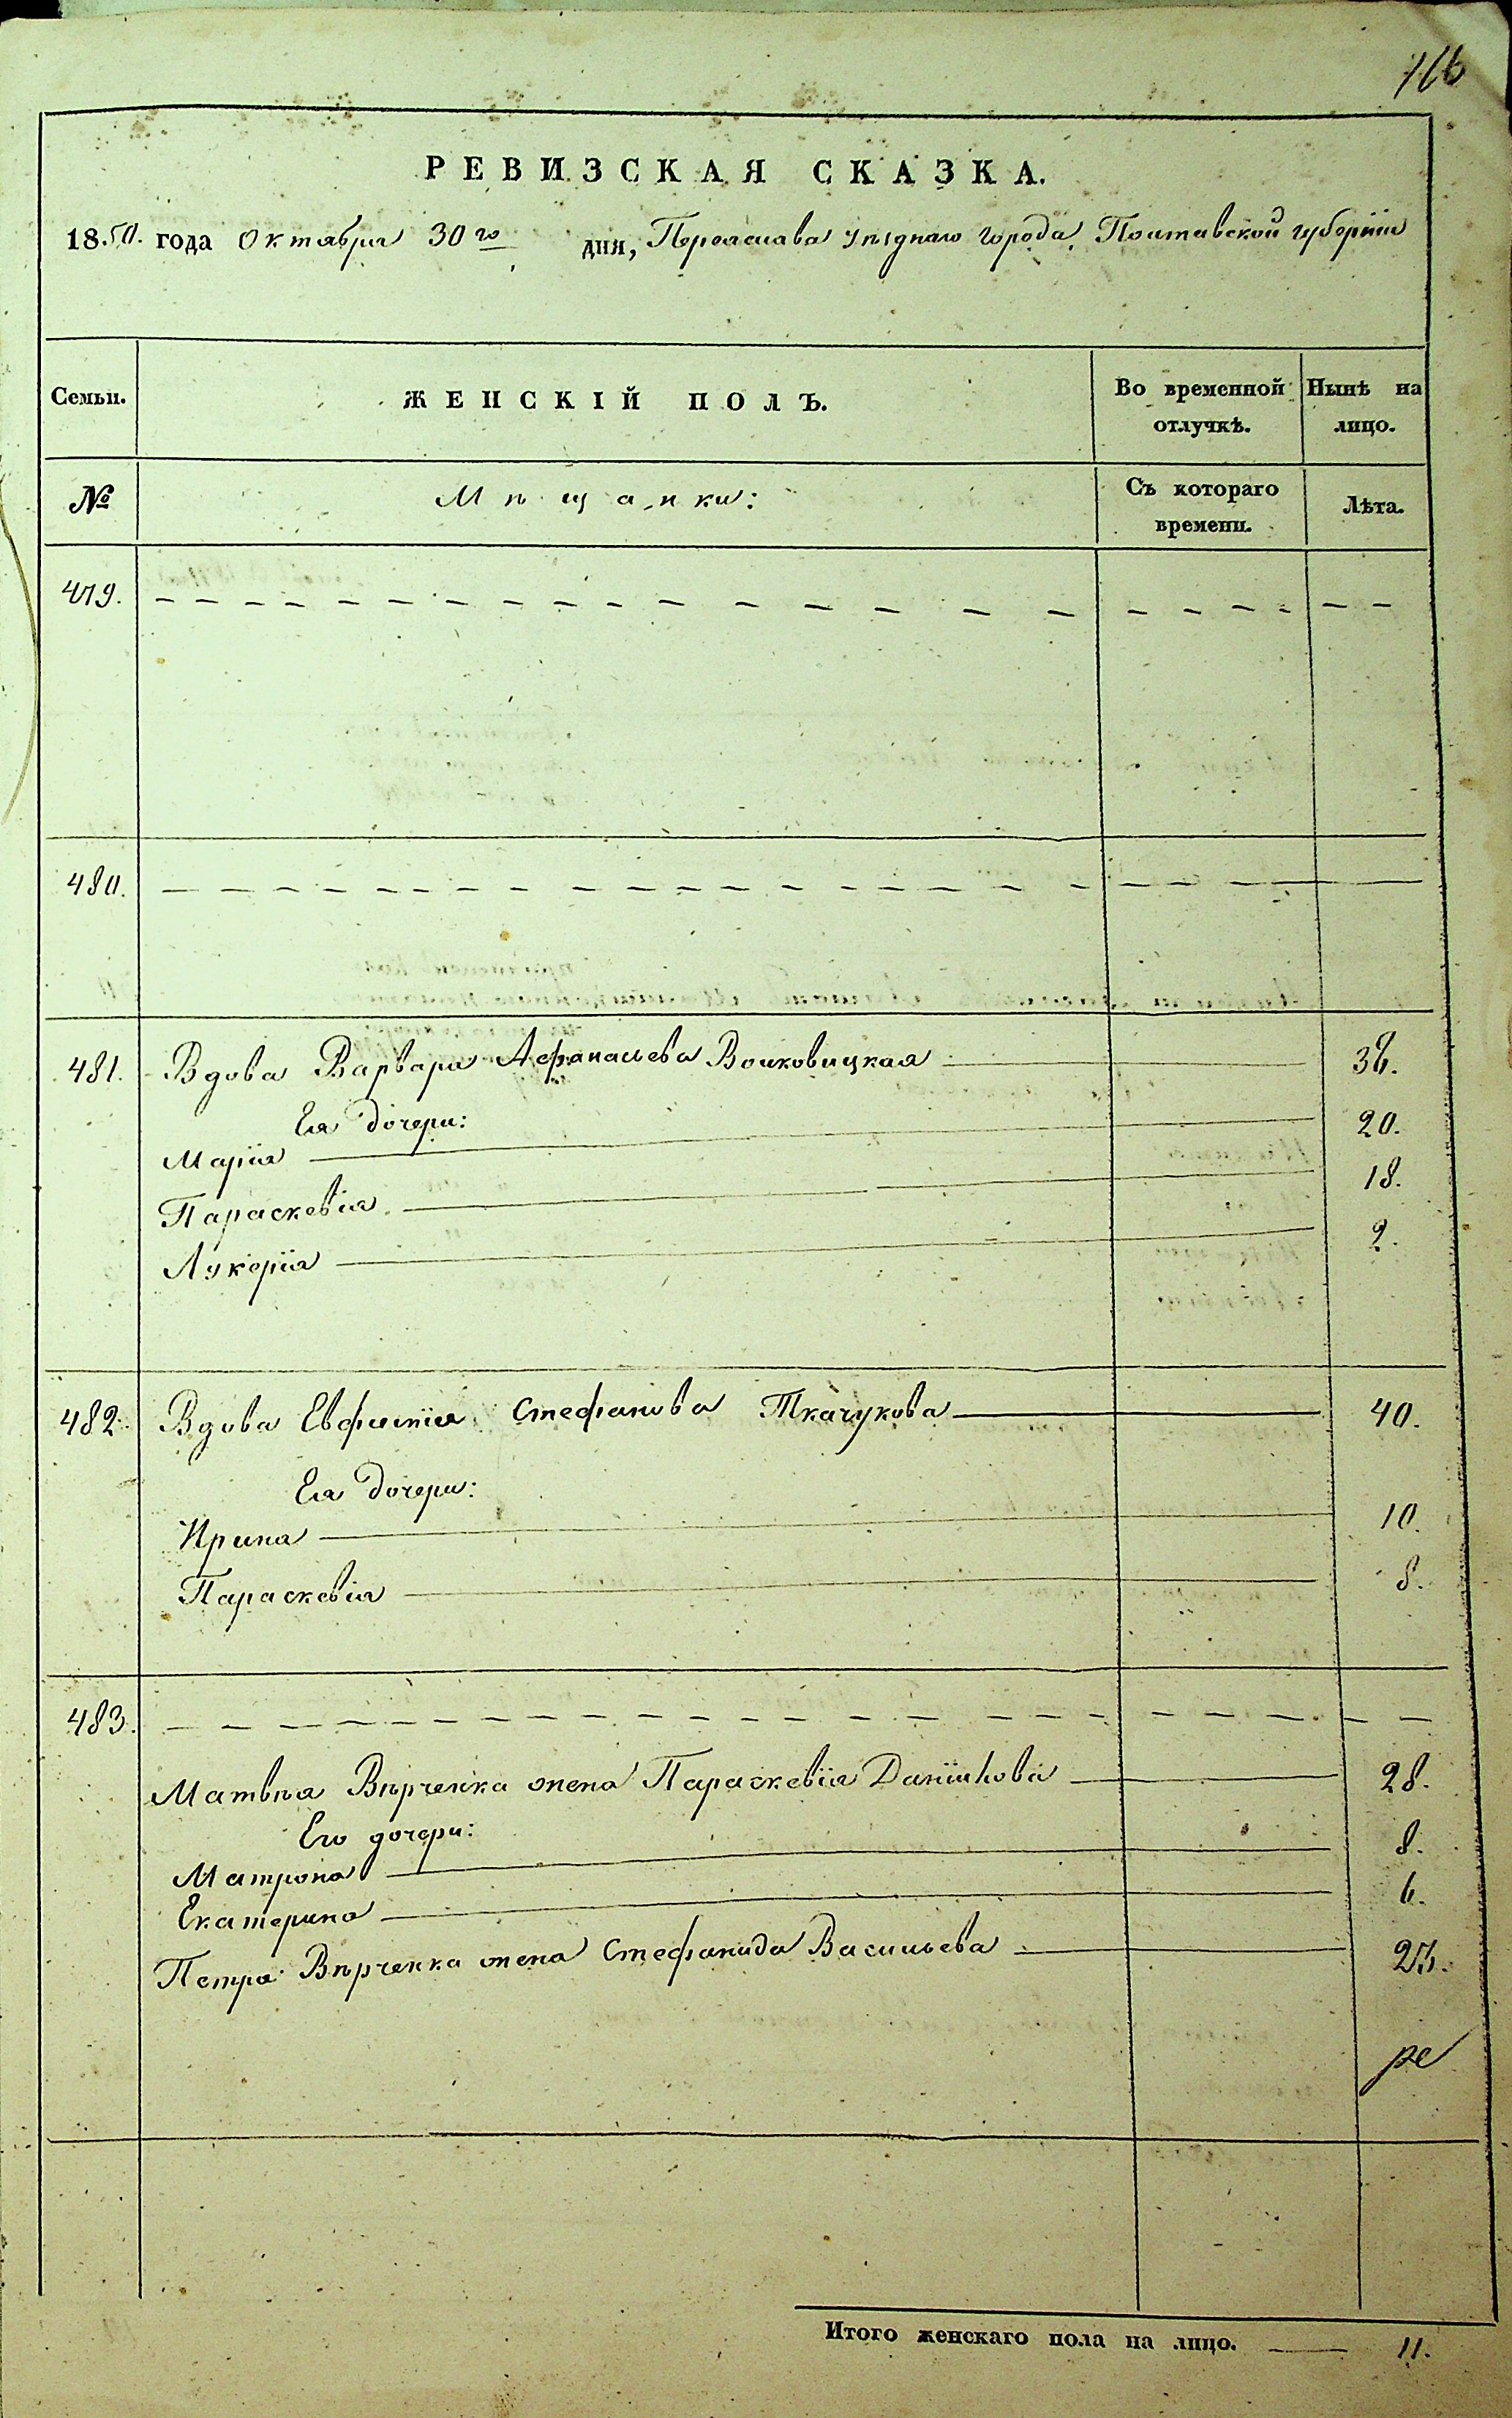 166
РЕВИЗСКАЯ СКАЗКА.
1850. года Октября 30го дня, Переяслава уѣзднаго города, Полтавской губерніи
Семьи. ЖЕНСКІЙ ПОЛЪ. Во временной отлучкѣ. Нынѣ на лицо.
№ Мѣщанки: Съ котораго времени. Лѣта.
479. – – – – – – – – – – – – – – – – – – – – –
480. – – – – – – – – – – – – – – – – – – – – –
481. Вдова Варвара Афанасьева Волковицкая — 36.
Ея дочери:
Марія — 20.
Параскевія — 18.
Лукерія — 2.
482. Вдова Евфимія Стефанова Ткачукова — 40.
Ея дочери:
Ирина — 10.
Параскевія — 8.
483. – – – – – – – – – – – – – – – – – – – – –
Матвѣя Вѣрченка жена Параскевія Даніилова — 28.
Его дочери:
Матрона — 8.
Екатерина — 6.
Петра Вѣрченка жена Стефанида Васильева —
Итого женскаго пола на лицо. — 11.